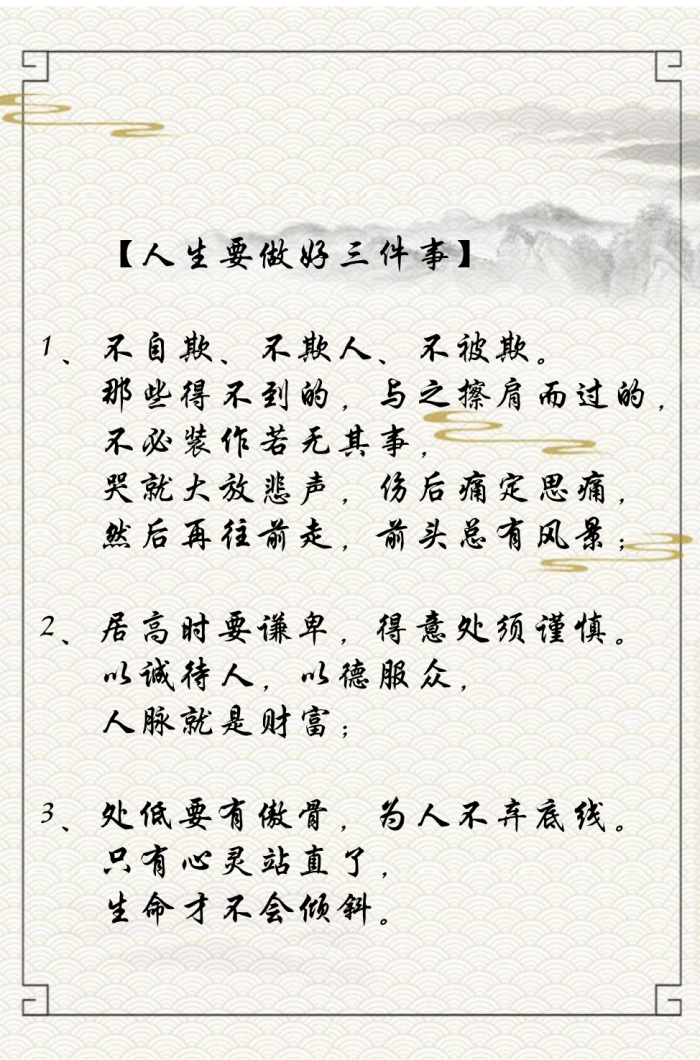 【人生要做好三件事】
1、不自欺、不欺人、不被欺。
那些得不到的，与之擦肩而过的，
不必装作若无其事，
哭就大放悲声，伤后痛定思痛，
然后再往前走，前头总有风景；
2、居高时要谦卑，得意处须谨慎。
以诚待人，以德服众，
人脉就是财富；
3、处低要有傲骨，为人不弃底线。
只有心灵站直了，
生命才不会倾斜。